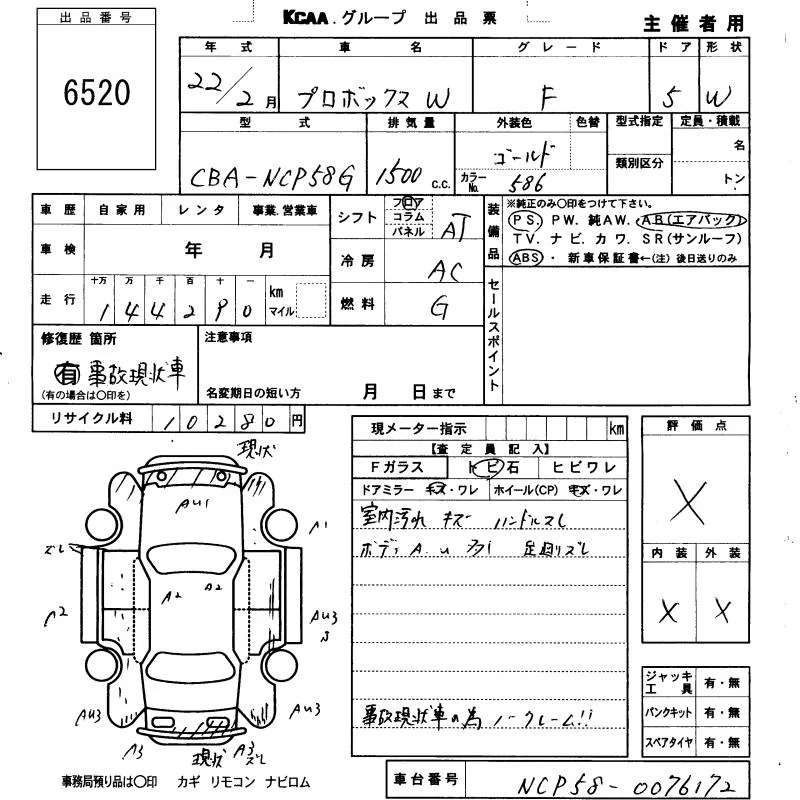 出品番号
6520
KCAA.グループ 出品票
主催者用
年式 車名 グレード ドア 形状
22/2月 プロボックスW F 5 W
型式 排気量 外装色 色替 型式指定 定員・積載
CBA-NCP58G 1500 c.c. ゴールド 名
カラーNo. 586 類別区分 トン
車歴 自家用 レンタ 事業.営業車
シフト フロア コラム パネル AT
装備品
※純正のみ〇印をつけて下さい。
PS. PW. 純AW. AB(エアバック)
TV. ナビ. カワ. SR(サンルーフ)
ABS・新車保証書←(注)後日送りのみ
車検 年 月
冷房 AC
走行 十万 万 千 百 十 一 km マイル
144290
燃料 G
セールスポイント
修復歴 箇所
有 事故現状車
(有の場合は〇印を)
注意事項
名変期日の短い方 月 日まで
リサイクル料 10280円
現メーター指示 km
【査定員記入】
Fガラス トビ石 ヒビワレ
ドアミラー キズ・ワレ ホイール(CP) キズ・ワレ
室内汚れ キズ ハンドルスレ
ボディA.u
事故現状車の為 ノークレーム!!
評価点
X
内装 外装
X X
ジャッキ工具 有・無
パンクキット 有・無
スペアタイヤ 有・無
現状
AU1
A1
ズレ
A2
A2
A2
AU3
S
AU3
AU3
A3
現状
A3
ズレ
事務局預り品は〇印 カギ リモコン ナビロム
車台番号 NCP58-0076172